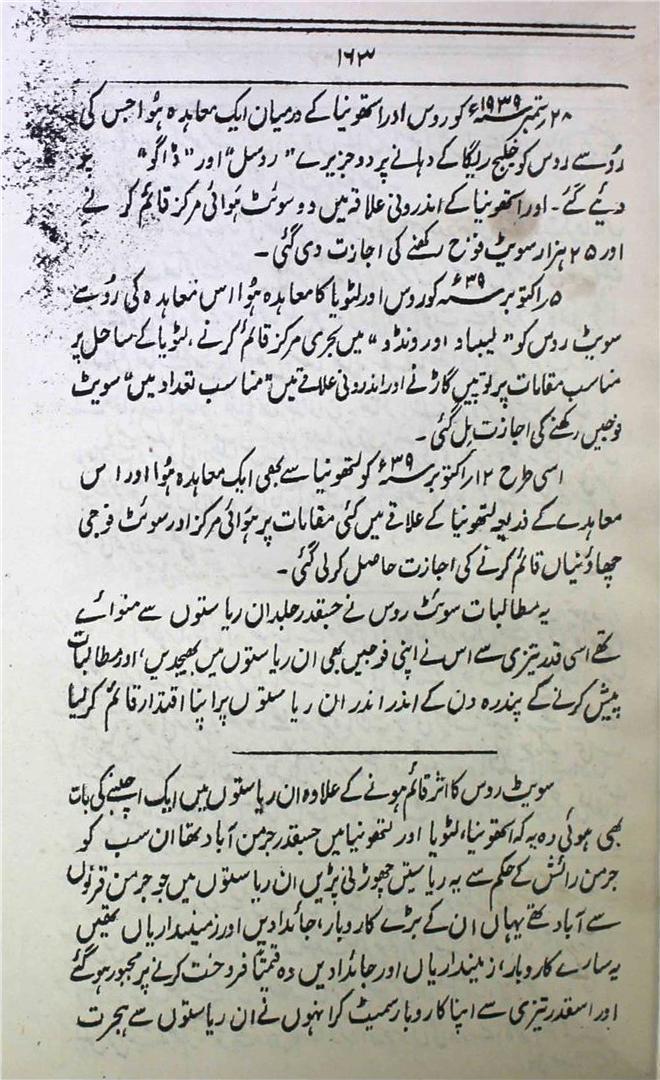 ۱۶۳
۲۸ ستمبر سنہ ۱۹۳۹ء کو روس اور استھونیا کے درمیان ایک معاہدہ ہُوا جس کی
رُو سے روس کو خلیج ریگا کے دہانے پر دو جزیرے "روسل" اور "ڈاگو" پر
دیئے گئے۔ اور استھونیا کے اندرونی علاقہ میں دو سوئٹ ہوائی مرکز قائم کرنے
اور ۲۵ ہزار سویٹ فوج رکھنے کی اجازت دی گئی۔
۵ اکتوبر سنہ ۳۹ء کو روس اور لٹویا کا معاہدہ ہُوا اس معاہدہ کی رُو سے
سویٹ روس کو "لیباد اور ونڈو" میں بحری مرکز قائم کرنے، لٹویا کے ساحل پر
مناسب مقامات پر توپیں گاڑنے اور اندرونی علاقے میں "مناسب تعداد میں" سویٹ
فوجیں رکھنے کی اجازت مِل گئی۔
اسی طرح ۱۲ اکتوبر سنہ ۳۹ء کو لتھونیا سے بھی ایک معاہدہ ہُوا اور اس
معاہدے کے ذریعہ لتھونیا کے علاقے میں کئی مقامات پر ہوائی مرکز اور سوئٹ فوجی
چھاؤنیاں قائم کرنے کی اجازت حاصل کر لی گئی۔
یہ مطالبات سوئٹ روس نے جسقدر جلد ان ریاستوں سے منوائے
تھے اسی قدر تیزی سے اس نے اپنی فوجیں بھی ان ریاستوں میں بھیجدیں، اور مطالبات
پیش کرنے کے پندرہ دن کے اندر اندر ان ریاستوں پر اپنا اقتدار قائم کر لیا
سویٹ روس کا اثر قائم ہونے کے علاوہ ان ریاستوں میں ایک اچنبے کی بات
بھی ہوئی وہ یہ کہ استھونیا، لٹویا اور لتھونیا میں جسقدر جرمن آباد تھا ان سب کو
جرمن رائش کے حکم سے یہ ریاستیں چھوڑنی پڑیں ان ریاستوں میں جو جرمن قرنوں
سے آباد تھے یہاں ان کے بڑے کاروبار، جائدادیں اور زمینداریاں تھیں
یہ سارے کاروبار، زمینداریاں اور جائدادیں وہ قیمتاً فروخت کرنے پر مجبور ہو گئے
اور اسقدر تیزی سے اپنا کاروبار سمیٹ کر انہوں نے ان ریاستوں سے ہجرت